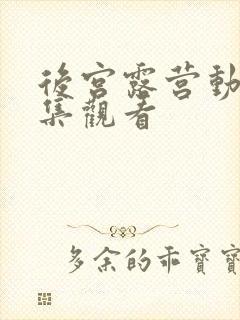 後宮露营動
集觀看
多余的乖寶寶